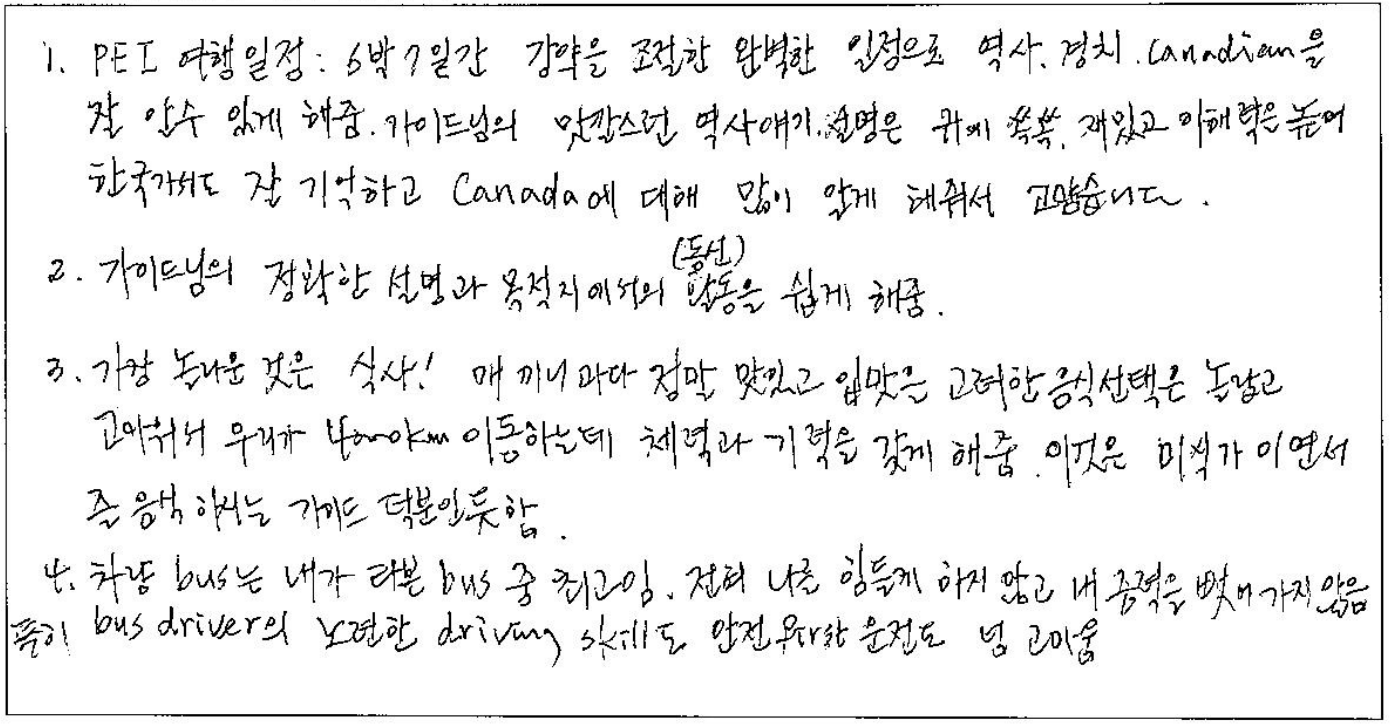 1. PEI 여행일정: 6박7일간 강약을 조절한 완벽한 일정으로 역사. 경치. Canadian을
잘 알수 있게 해줌. 가이드님의 맛깔스런 역사얘기. 설명은 귀에 쏙쏙, 재밌고 이해력은 높여
한국가서도 잘 기억하고 Canada에 대해 많이 알게 해줘서 고맙습니다.
(동선)
2. 가이드님의 정확한 설명과 목적지에서의 활동을 쉽게 해줌.
3. 가장 놀라운 것은 식사! 매 끼니마다 정말 맛있고 입맛을 고려한 음식선택은 놀랍고
고마워서 우리가 이동하는데 체력과 기력을 갖게 해줌. 이것은 미식가이면서
하시는 가이드 덕분인듯함.
4. 차량 bus는 내가 타본 bus 중 최고임. 전혀 나를 힘들게 하지 않고 내 뺏어가지 않음
특히 bus driver의 노련한 driving skill도 안전 운전도 넘 고마움